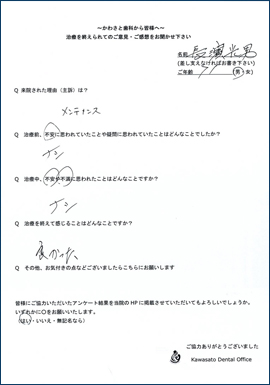 ～かわさと歯科から皆様へ～
治療を終えられてのご意見・ご感想をお聞かせ下さい
名前
(差し支えなければお書き下さい)
ご年齢 男・女
Q 来院された理由（主訴）は？
メンテナンス
Q 治療前、不安に思われていたことや疑問に思われていたことはどんなことでしたか？
ナシ
Q 治療中、不安や不満に思われたことはどんなことですか？
ナシ
Q 治療を終えて感じることはどんなことですか？
良かった
Q その他、お気付きの点などございましたらこちらにお願いします
皆様にご協力いただいたアンケート結果を当院のHPに掲載させていただいてもよろしいでしょうか。
いずれかに〇をお願いいたします。
（はい・いいえ・無記名なら）
ご協力ありがとうございました
Kawasato Dental Office